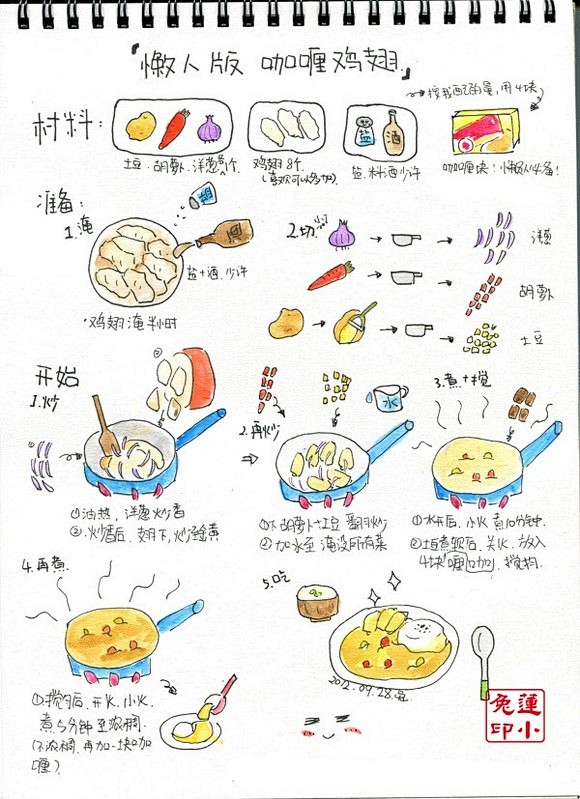 『懒人版 咖喱鸡翅』
按我画的量,用4块
材料:
盐
酒
土豆.胡萝卜.洋葱各1个.
鸡翅8个.
(喜欢可以多加)
盐.料酒少许
咖喱块!懒人必备!
准备:
1.腌
盐
酒
盐+酒.少许
*鸡翅腌半小时
2.切
洋葱
胡萝卜
土豆
开始
1.炒
①油热,洋葱炒香
②炒香后,翅下,炒至金黄
2.再炒
水
①下胡萝卜+土豆 翻炒
②加水至 淹没所有菜
3.煮+搅
①水开后,小火 煮10分钟.
②土豆煮软后,关火.放入
4块咖喱,搅拌.
4.再煮.
①搅匀后,开火.小火.
煮5分钟至浓稠.
(不浓稠.再加一块咖
喱)
5.吃
2012.09.28.
免蓮
印小